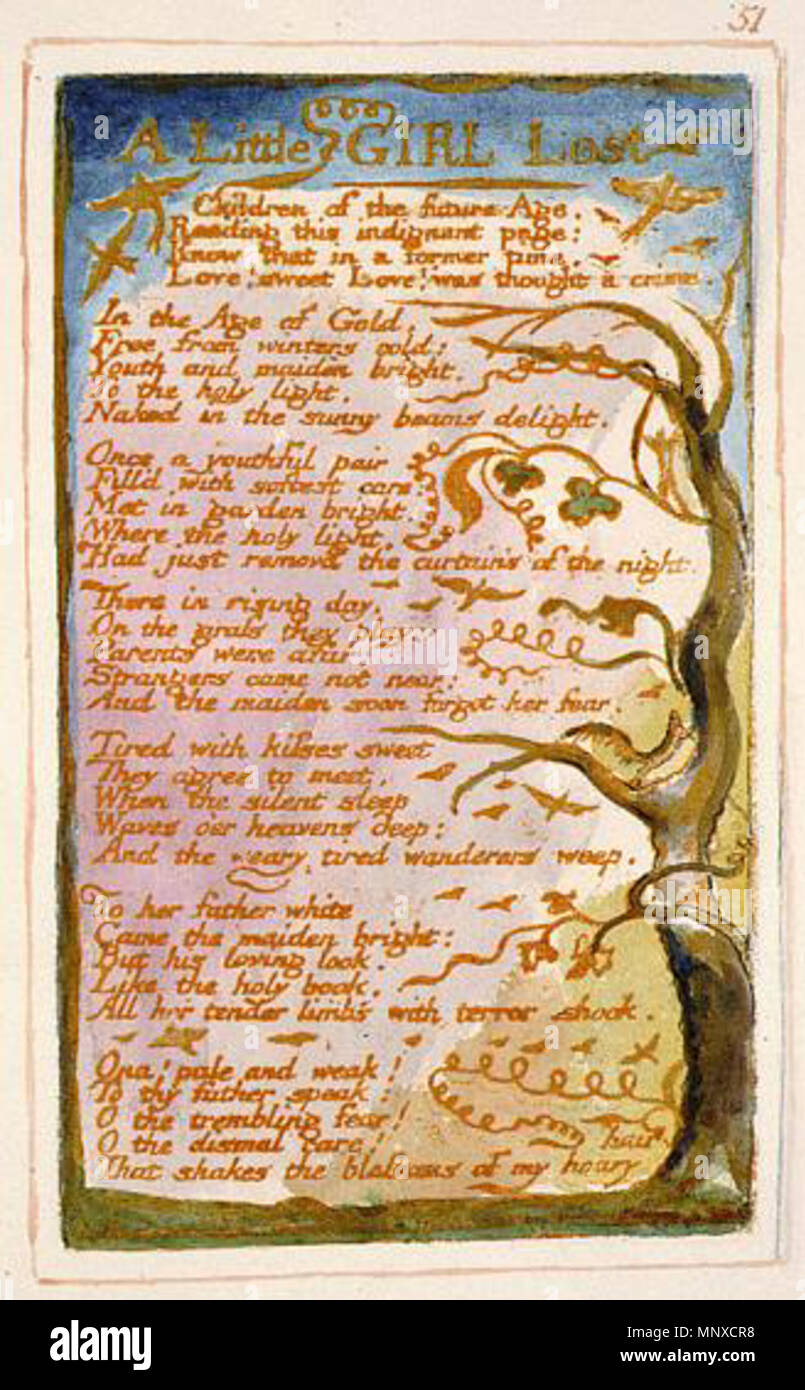 51
A Little GIRL Lost
Children of the future Age,
Reading this indignant page:
Know that in a former time,
Love! sweet Love! was thought a crime.
In the Age of Gold,
Free from winters cold:
Youth and maiden bright,
To the holy light,
Naked in the sunny beams delight.
Once a youthful pair
Fill'd with softest care:
Met in garden bright,
Where the holy light,
Had just removd the curtains of the night.
There in rising day,
On the graſs they play:
Parents were afar:
Strangers came not near:
And the maiden soon forgot her fear.
Tired with kiſses sweet
They agree to meet,
When the silent sleep
Waves o'er heavens deep:
And the weary tired wanderers weep.
To her father white
Came the maiden bright:
But his loving look,
Like the holy book,
All her tender limbs with terror shook.
Ona! pale and weak!
To thy father speak:
O the trembling fear!
O the dismal care!
That shakes the bloſsoms of my hoary hair
alamy
Image ID: MNXCR8
www.alamy.com